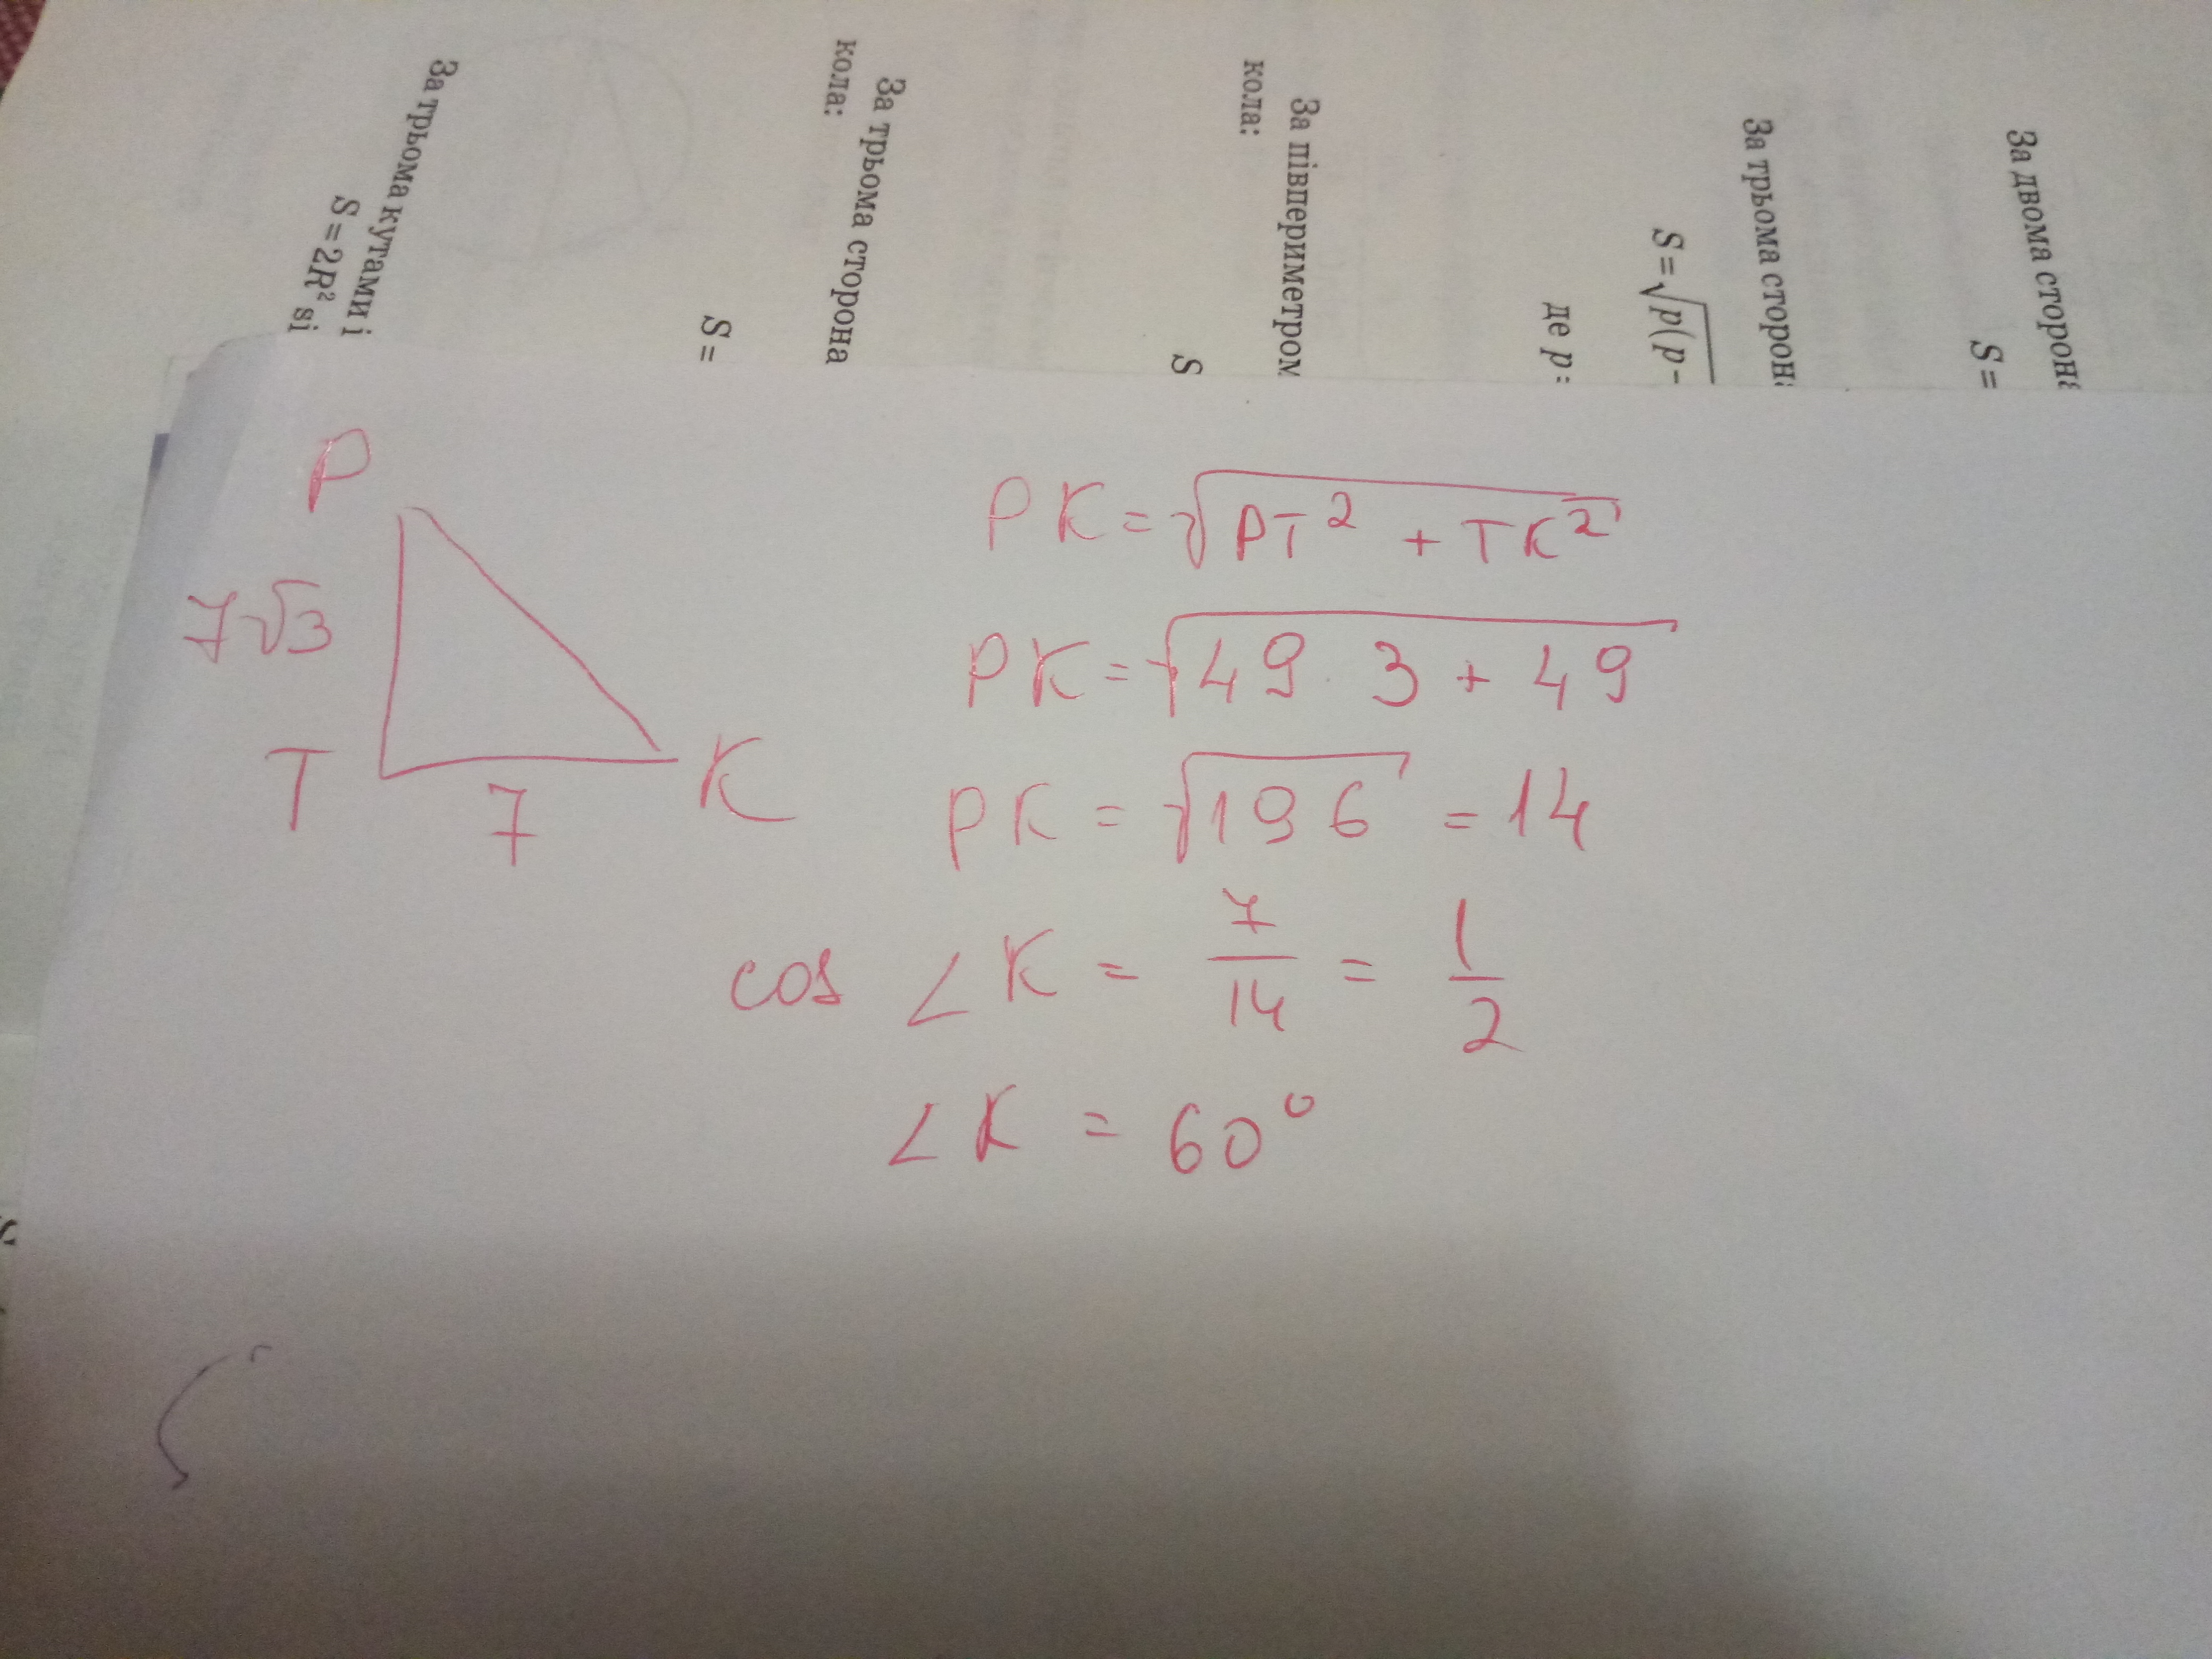 За двома сторон
S =
За трьома сторон
S = √p(p −
де p =
За півпериметром
кола:
S
За трьома сторона
кола:
S =
За трьома кутами і
S = 2R² si
P
7√3
T
7
K
PK = √PT² + TK²
PK = √49 · 3 + 49
PK = √196 = 14
cos ∠K = 7/14 = 1/2
∠K = 60°